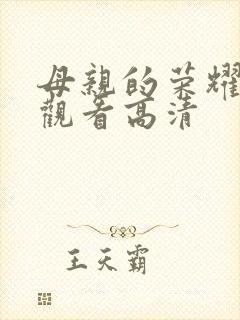 母親的荣耀
觀看高清
王天霸